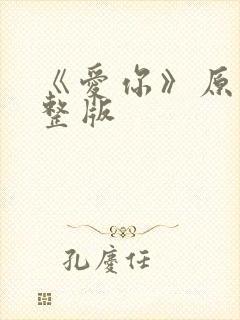 《愛你》原
整版
孔慶任